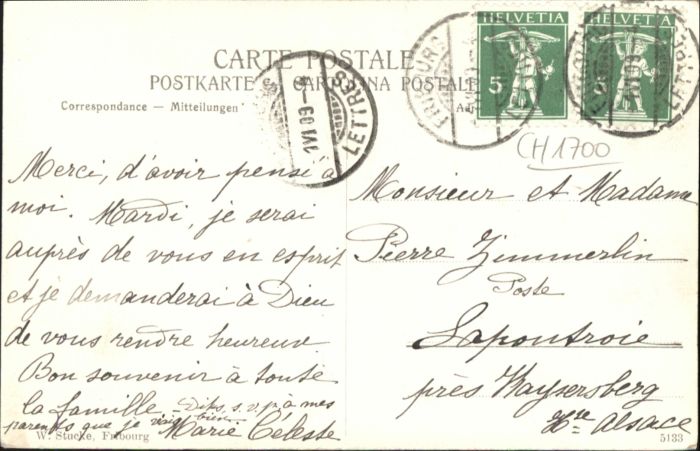 CARTE POSTALE
POSTKARTE
CARTOLINA POSTALE
Correspondance — Mitteilungen
HELVETIA
5
HELVETIA
5
FRIBOURG
LETTRES
LETTRES
1.VI.09.—9
CH 1700
Merci, d'avoir pensé à
moi. Mardi, je serai
auprès de vous en esprit
et je demanderai à Dieu
de vous rendre heureux
Bon souvenir à toute
la famille - Dites, s. v. p. à mes
parents que je vais bien
Marie Céleste
Monsieur et Madame
Pierre Zimmerlin
Poste
Lapoutroie
près Kaysersberg
Hte Alsace
W. Stucke, Fribourg
5133